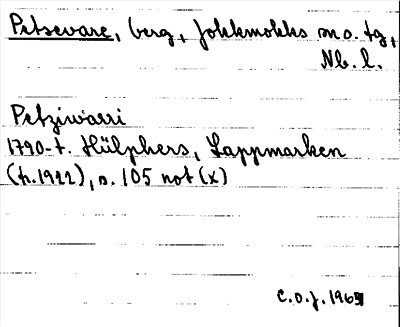 Petsevare, berg, Jokkmokks sn o. tg,
Nb. l.
Petziwarri
1790-t. Hülphers, Lappmarken
(tr. 1922), s. 105 not (x)
C.O.J. 1969